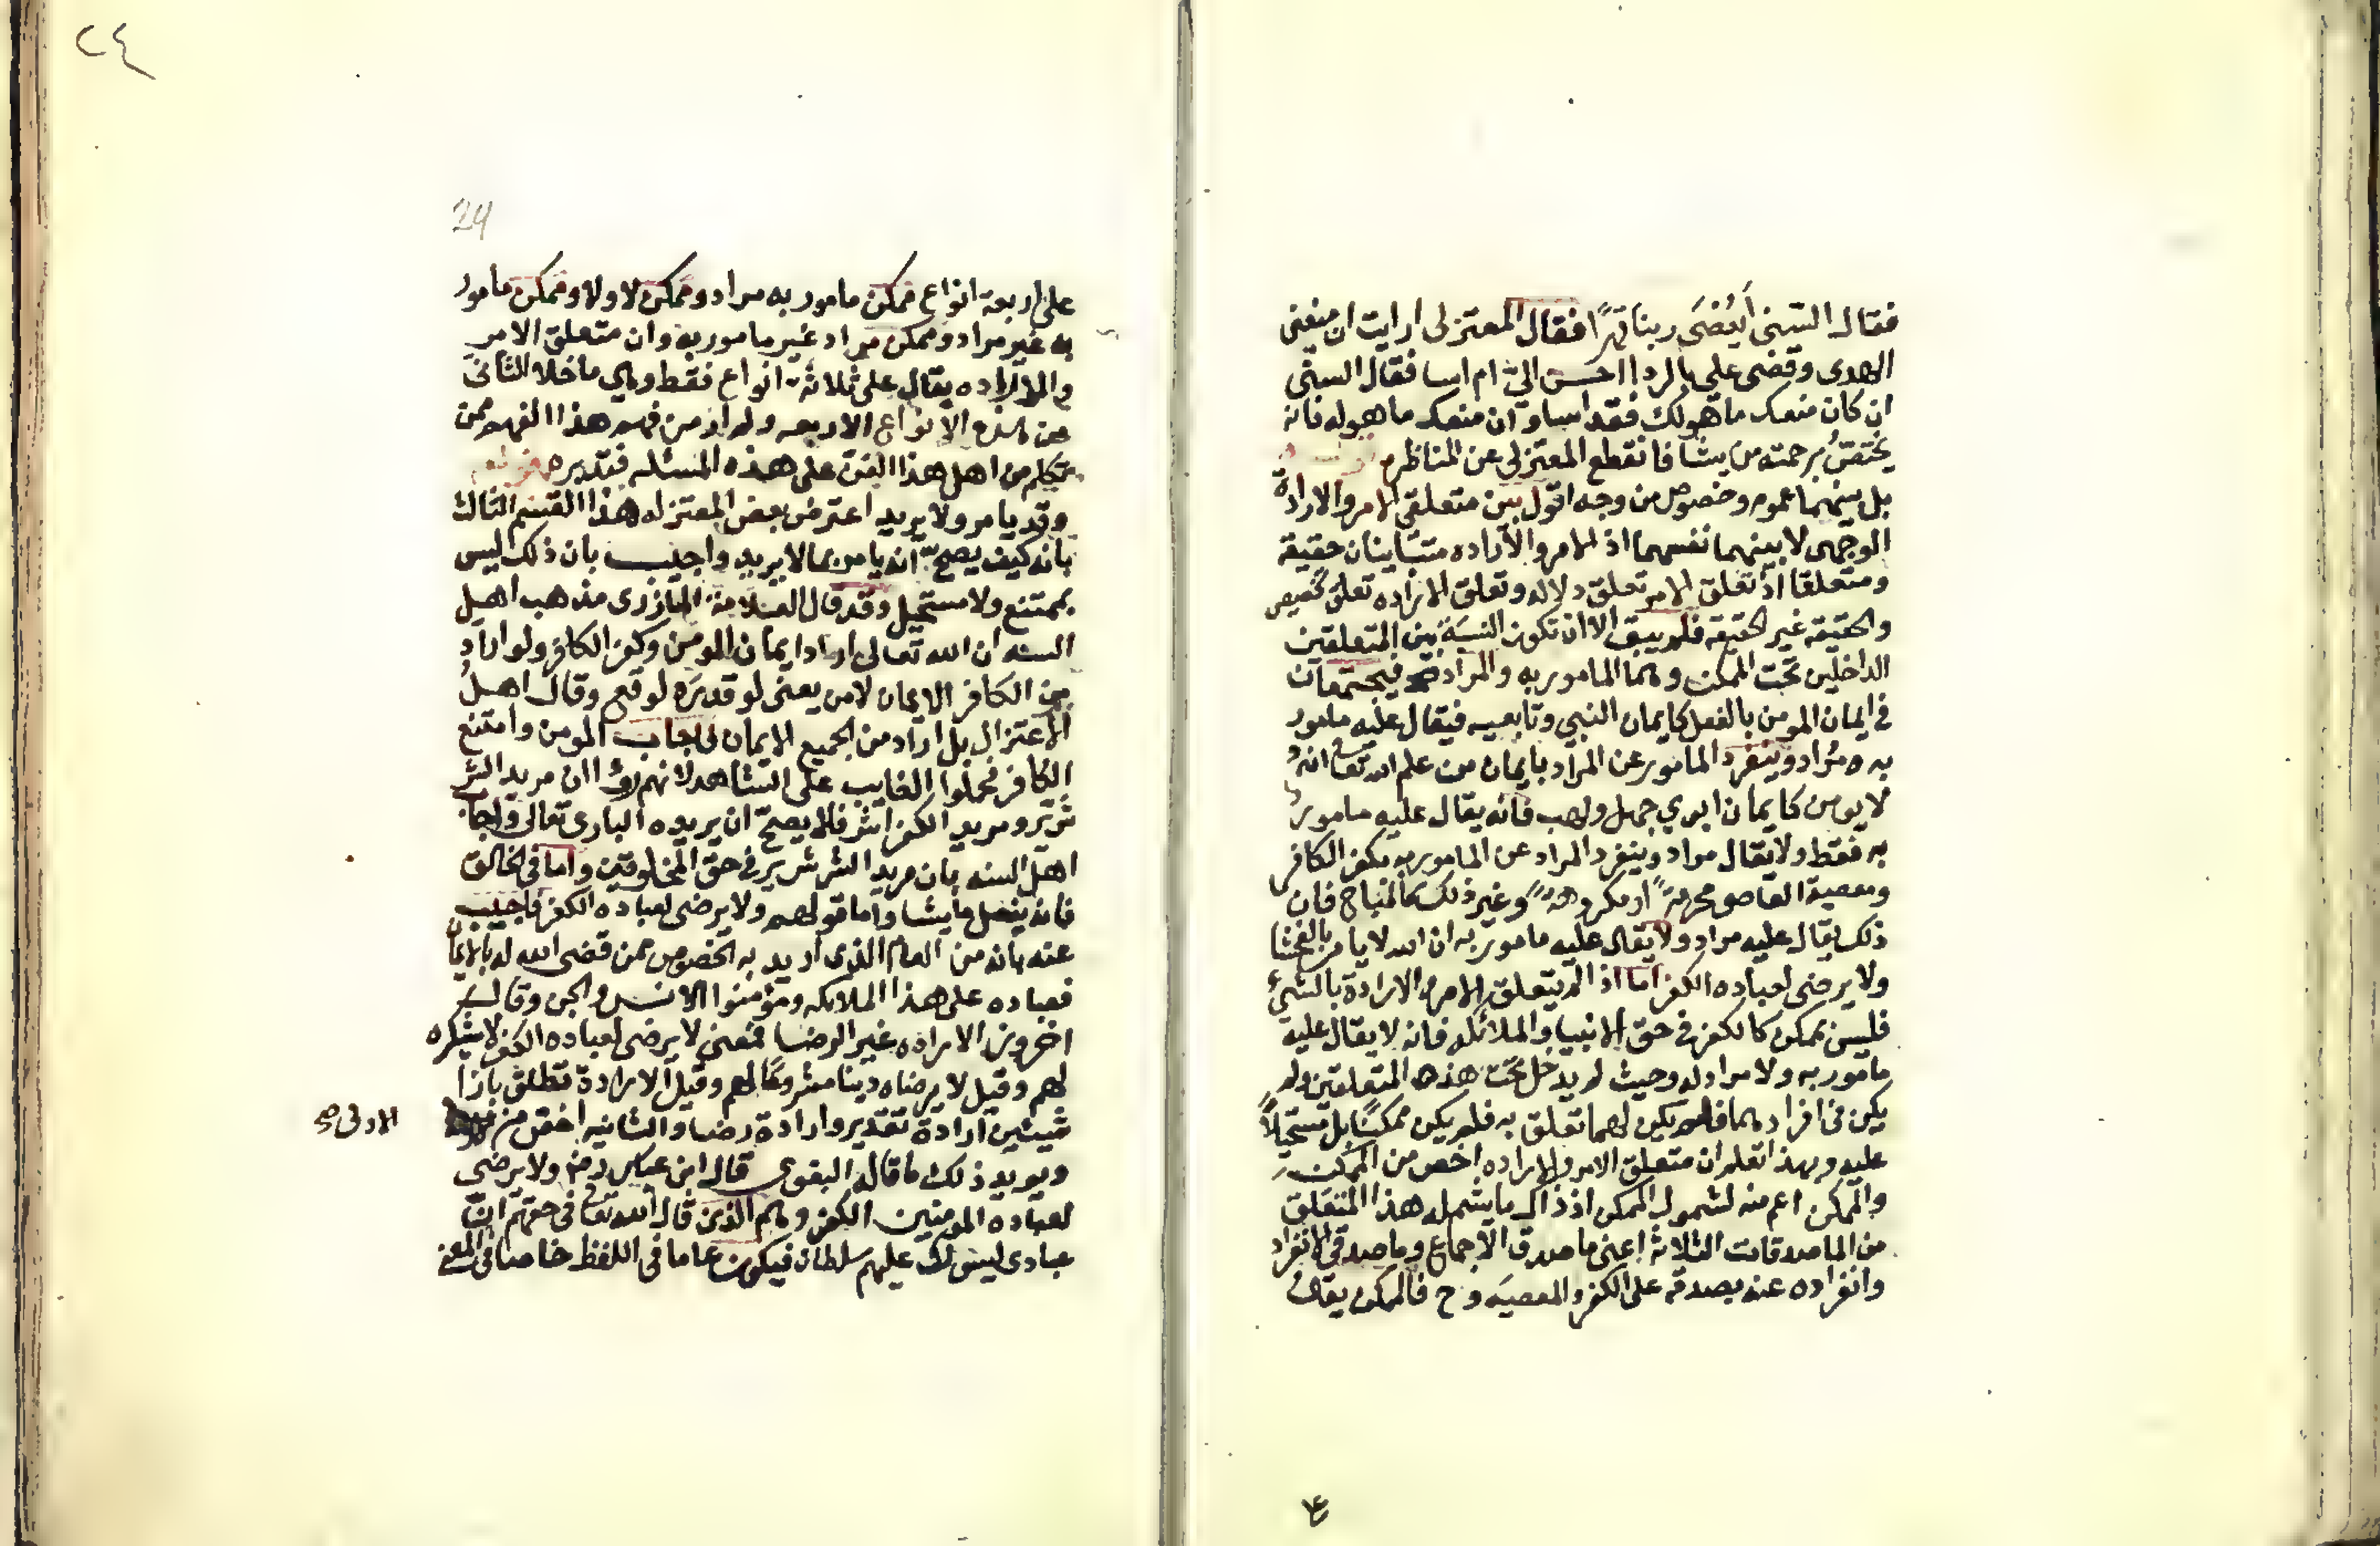 فقال السني أيُعْصَى ربنا قهرًا فقال المعتزلي ارايت ان منعنى
الهدى وقضى علي بالردا احسن اليّ ام اسا فقال السنّى
ان كان منعك ما هو لك فقد اسا وان منعك ما هو له فانه
يختصُّ برحمته من يشا فانقطع المعتزلى عن المناظره
بل بينهما عموم وخصوص من وجه اقول بين متعلقى الامر والارادة
الوجهى لا بينهما نفسهما اذ الامر والاراده متباينان حقيقة
ومتعلقا اذ تعلق الامر تعلق دلاله وتعلق الاراده تعلق تخصيص
والحقيقة غير الحقيقه فلم يبق الا ان تكون النسبَة بين المتعلقين
الداخلين تحت الممكن وهما المامور به والمراد فيجتمعان
في ايمان المومن بالفعل كايمان النبي وتابعيه فيقال عليه مامور
به ومُراد وينفرد المامور عن المراد بايمان من علم الله تعا انه
لا يومن كايمان ابوي جهل ولهب فانه يقال عليه مامور
به فقط ولا يقال مراد وينفرد المراد عن المامور به بكفر الكافر
ومعصية العاصو محرمةً او مكروهةً وغير ذلك كالمباح فان
ذلك يقال عليه مراد ولا يقال عليه مامور به ان الله لا يامر بالفحشا
ولا يرضى لعباده الكفر اما اذا لم يتعلق الامر والارادة بالشيء
فليس بممكن كالكفر في حق الانبيا والملائكه فانه لا يقال عليه
مامور به ولا مراد له وحيث لم يدخل تحت هذه المتعلقين ولم
يكن من افرادهما فلم يكن لهما تعلق به فلم يكن ممكنًا بل مستحيلاً
عليه وبهذا تعلم ان متعلق الامر والاراده اخص من الممكن
والممكن اعم منه لشمول الممكن اذ ذاك ما يشمله هذا المتعلق
من الماصدقات الثلاثة اعنى ما صدق الاجماع وما صدقى الانفراد
وانفراده عنه بصدقه على الكفر والمعصيَه وح فالممكن يقال
٢٤
24
على اربعة انواع ممكن مامور به مراد وممكن لا ولا وممكن مامور
به غير مراد وممكن مراد غير مامور به وان متعلق الامر
والاراده يقال على ثلاثة انواع فقط وهي ما خلا الثانى
من هذه الانواع الاربعه ولم ار من فهم هذا الفهم ممن
تكلم من اهل هذا الفن على هذه المسئله فتدبره
وقد يامر ولا يريد اعترض بعض المعتزله هذا القسم الثالث
بانه كيف يصحّ انه يامر بما لا يريد واجيب بان ذلك ليس
بممتنع ولا مستحيل وقد قال العلامة المازرى مذهب اهل
السنه ان الله تعالى اراد ايمان المومن وكفر الكافر ولو اراد
من الكافر الايمان لامن يعنى لو قدرَه لوقع وقال اهلُ
الاعتزال بل اراد من الجميع الايمان فاجاب المومن وامتنع
الكافر فحملوا الغايب على الشاهد لانهم راؤا ان مريد الشر
شرير ومريد الكفر اشر فلا يصحّ ان يريده البارى تعالى واجاب
اهل السنه بان مريد الشر شرير في حق المخلوقين واما في الخالق
فانه يفعل ما يشا واما قولهم ولا يرضى لعباده الكفر فاجيب
عنه بانه من العام الذى اريد به الخصوص ممن قضى الله له بالايمان
فعباده على هذا الملائكه ومؤمنوا الانس والجن وقال
اخرون الاراده غير الرضا فمعنى لا يرضى لعباده الكفر لا يشكره
لهم وقيل لا يرضاه دينا مشروعًا لهم وقيل الارادة تطلق بازا
شيئين ارادة تقدير وارادة رضا والثانيه اخص من
الاولى ص
ويويد ذلك ما قاله البغوى قال ابن عباس رضه ولا يرضى
لعباده المومنين الكفر وهم الذين قال الله تعا في حقهم ان
عبادى ليس لك عليهم سلطان فيكون عاما فى اللفظ خاصا فى المعنى